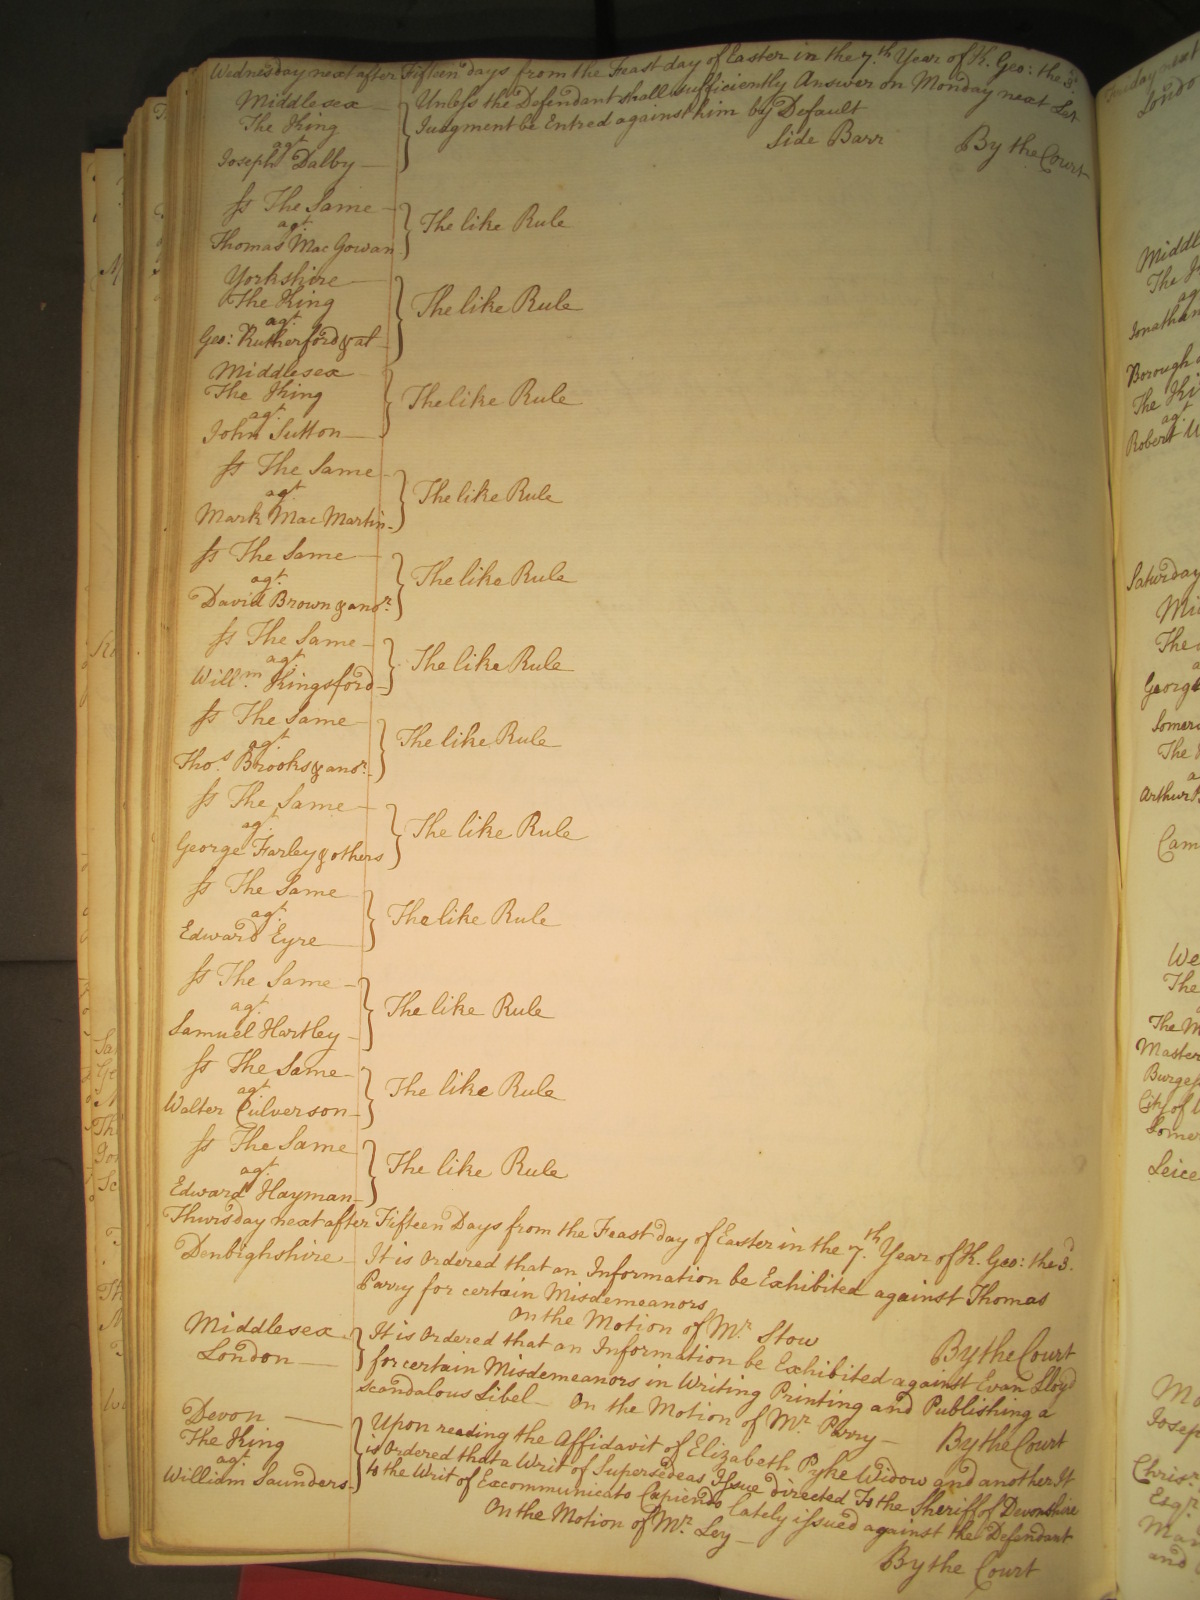 Wednesday next after Fifteen days from the Feast day of Easter in the 7.th Year of K. Geo: the 3d.
Middlesex
The King
agt.
Joseph Dalby
Unless the Defendant shall sufficiently Answer on Monday next Let
Judgment be Entred against him by Default
Side Barr By the Court
ss The Same
agt.
Thomas Mac Gowan
The like Rule
Yorkshire
The King
agt.
Geo: Rutherford & al
The like Rule
Middlesex
The King
agt.
John Sutton
The like Rule
ss The Same
agt.
Mark Mac Martin
The like Rule
ss The Same
agt.
David Brown & anor.
The like Rule
ss The Same
agt.
Will.m Kingsford
The like Rule
ss The Same
agt.
Tho.s Brooks & anor.
The like Rule
ss The Same
agt.
George Farley & others
The like Rule
ss The Same
agt.
Edward Eyre
The like Rule
ss The Same
agt.
Samuel Hartley
The like Rule
ss The Same
agt.
Walter Culverson
The like Rule
ss The Same
agt.
Edward Hayman
The like Rule
Thursday next after Fifteen Days from the Feast day of Easter in the 7.th Year of K. Geo: the 3d.
Denbighshire
It is Ordered that an Information be Exhibited against Thomas
Parry for certain Misdemeanors
On the Motion of Mr. Stow
By the Court
Middlesex
London
It is Ordered that an Information be Exhibited against Evan Lloyd
for certain Misdemeanors in Writing Printing and Publishing a
scandalous Libel On the Motion of Mr. Parry By the Court
Devon
The King
agt.
William Saunders
Upon reading the Affidavit of Elizabeth Pyke Widow and another It
is Ordered that a Writ of Supersedeas Issue directed To the Sheriff of Devonshire
to the Writ of Excommunicato Capiendo lately issued against the Defendant
On the Motion of Mr. Ley
By the Court